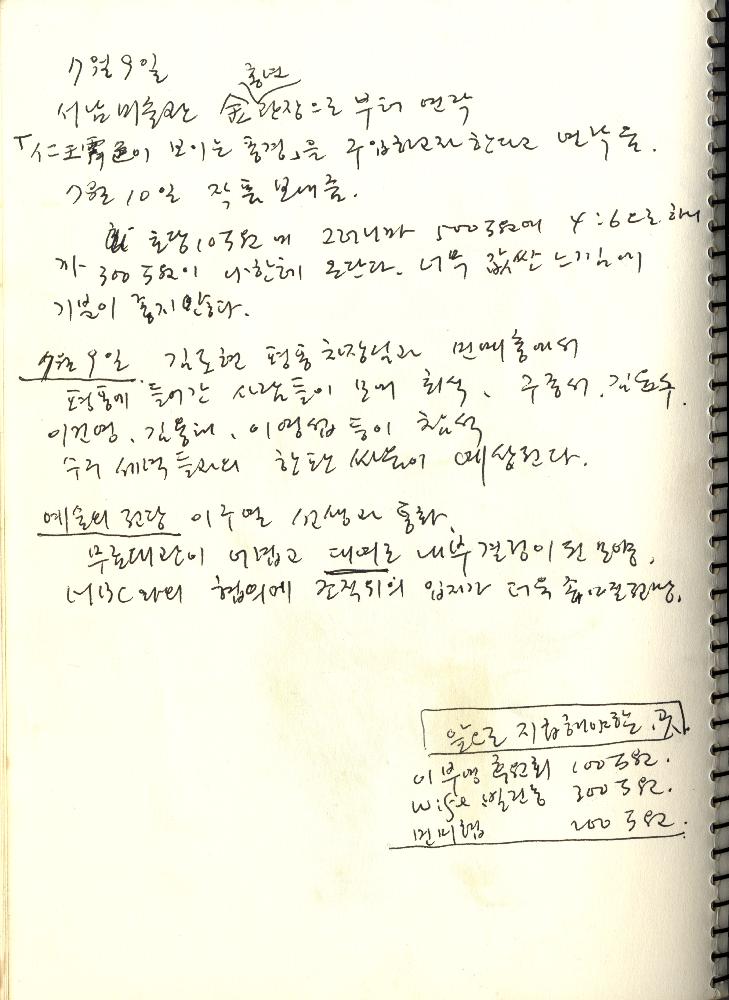 7월 9일
서남미술관 金홍년 관장으로 부터 연락
「仁王霽色이 보이는 풍경」을 구입하고자 한다고 연락 옴.
7월 10일 작품 보내줌.
호당 10만원에 그러니까 500만원에 4:6으로 하니
까 300만원이 나한테 온단다. 너무 값싼 느낌에
기분이 좋지 않다.
7월 9일 김도현 평통 차장님과
평통에 들어간 사람들이 모여 회식. 구중서, 김
이건영, 김용태, 이영섭 등이 참석
수구 세력들과의 한판 싸움이 예상된다.
예술의 전당 이주열 선생과 통화,
무료대관이 어렵고 대여로 내부 결정이 된 모양,
MBC와의 협의에 조직위의 입지가 더욱
앞으로 지급해야할 곳
이부영 후원회 100만원.
wife 300만원.
민미협 200만원.